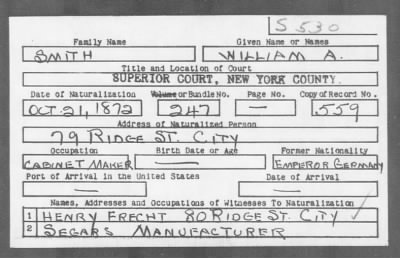 S 530
Family Name Given Name or Names
SMITH WILLIAM A.
Title and Location of Court
SUPERIOR COURT, NEW YORK COUNTY.
Date of Naturalization Volume or Bundle No. Page No. Copy of Record No.
OCT. 21, 1872 247 — 559
Address of Naturalized Person
79 RIDGE ST. CITY
Occupation Birth Date or Age Former Nationality
CABINET MAKER — EMPEROR GERMANY
Port of Arrival in the United States Date of Arrival
— —
Names, Addresses and Occupations of Witnesses To Naturalization
1 HENRY FRECHT 80 RIDGE ST. CITY
2 SEGARS MANUFACTURER